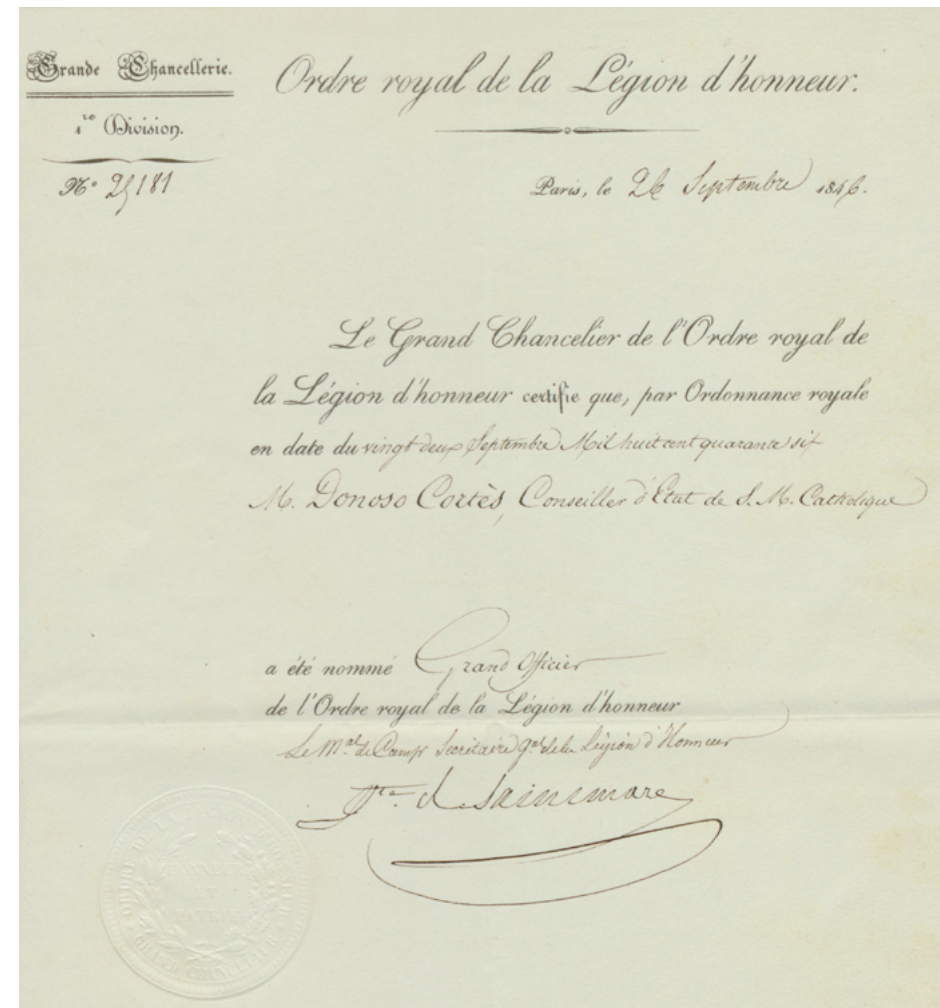 Grande Chancellerie.
1re Division.
No 25181
Ordre royal de la Légion d'honneur.
Paris, le 26 Septembre 1846.
Le Grand Chancelier de l'Ordre royal de
la Légion d'honneur certifie que, par Ordonnance royale
en date du vingt deux Septembre Mil huit cent quarante six
M. Donoso Cortès, Conseiller d'Etat de S. M. Catholique
a été nommé Grand Officier
de l'Ordre royal de la Légion d'honneur
Le Mal de Camp Secrétaire gal de la Légion d'Honneur
Vte de Saintmars
HONNEUR
ET
PATRIE
GRAND CHANCELIER